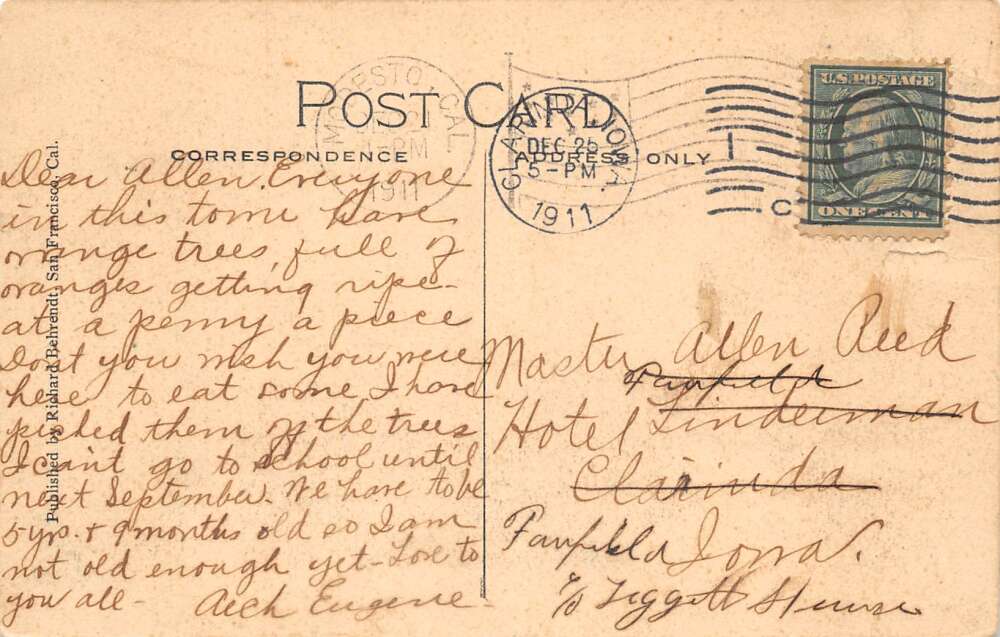 POST CARD
CORRESPONDENCE
ADDRESS ONLY
MODESTO, CAL.
1-PM
1911
CLARINDA, IOWA.
DEC 25
5-PM
1911
U.S. POSTAGE
ONE CENT
Published by Richard Behrendt, San Francisco, Cal.
Dear Allen, Everyone
in this town have
orange trees, full of
oranges getting ripe -
at a penny a piece
Dont you wish you were
here to eat some I have
picked them off the trees
I can't go to school until
next September. We have to be
5 yrs. & 9 months old so I am
not old enough yet - Love to
you all - Arch Eugene -
Master Allen Reed
Fairfield
Hotel Linderman
Clarinda
Fairfield Iowa.
c/o Leggett House